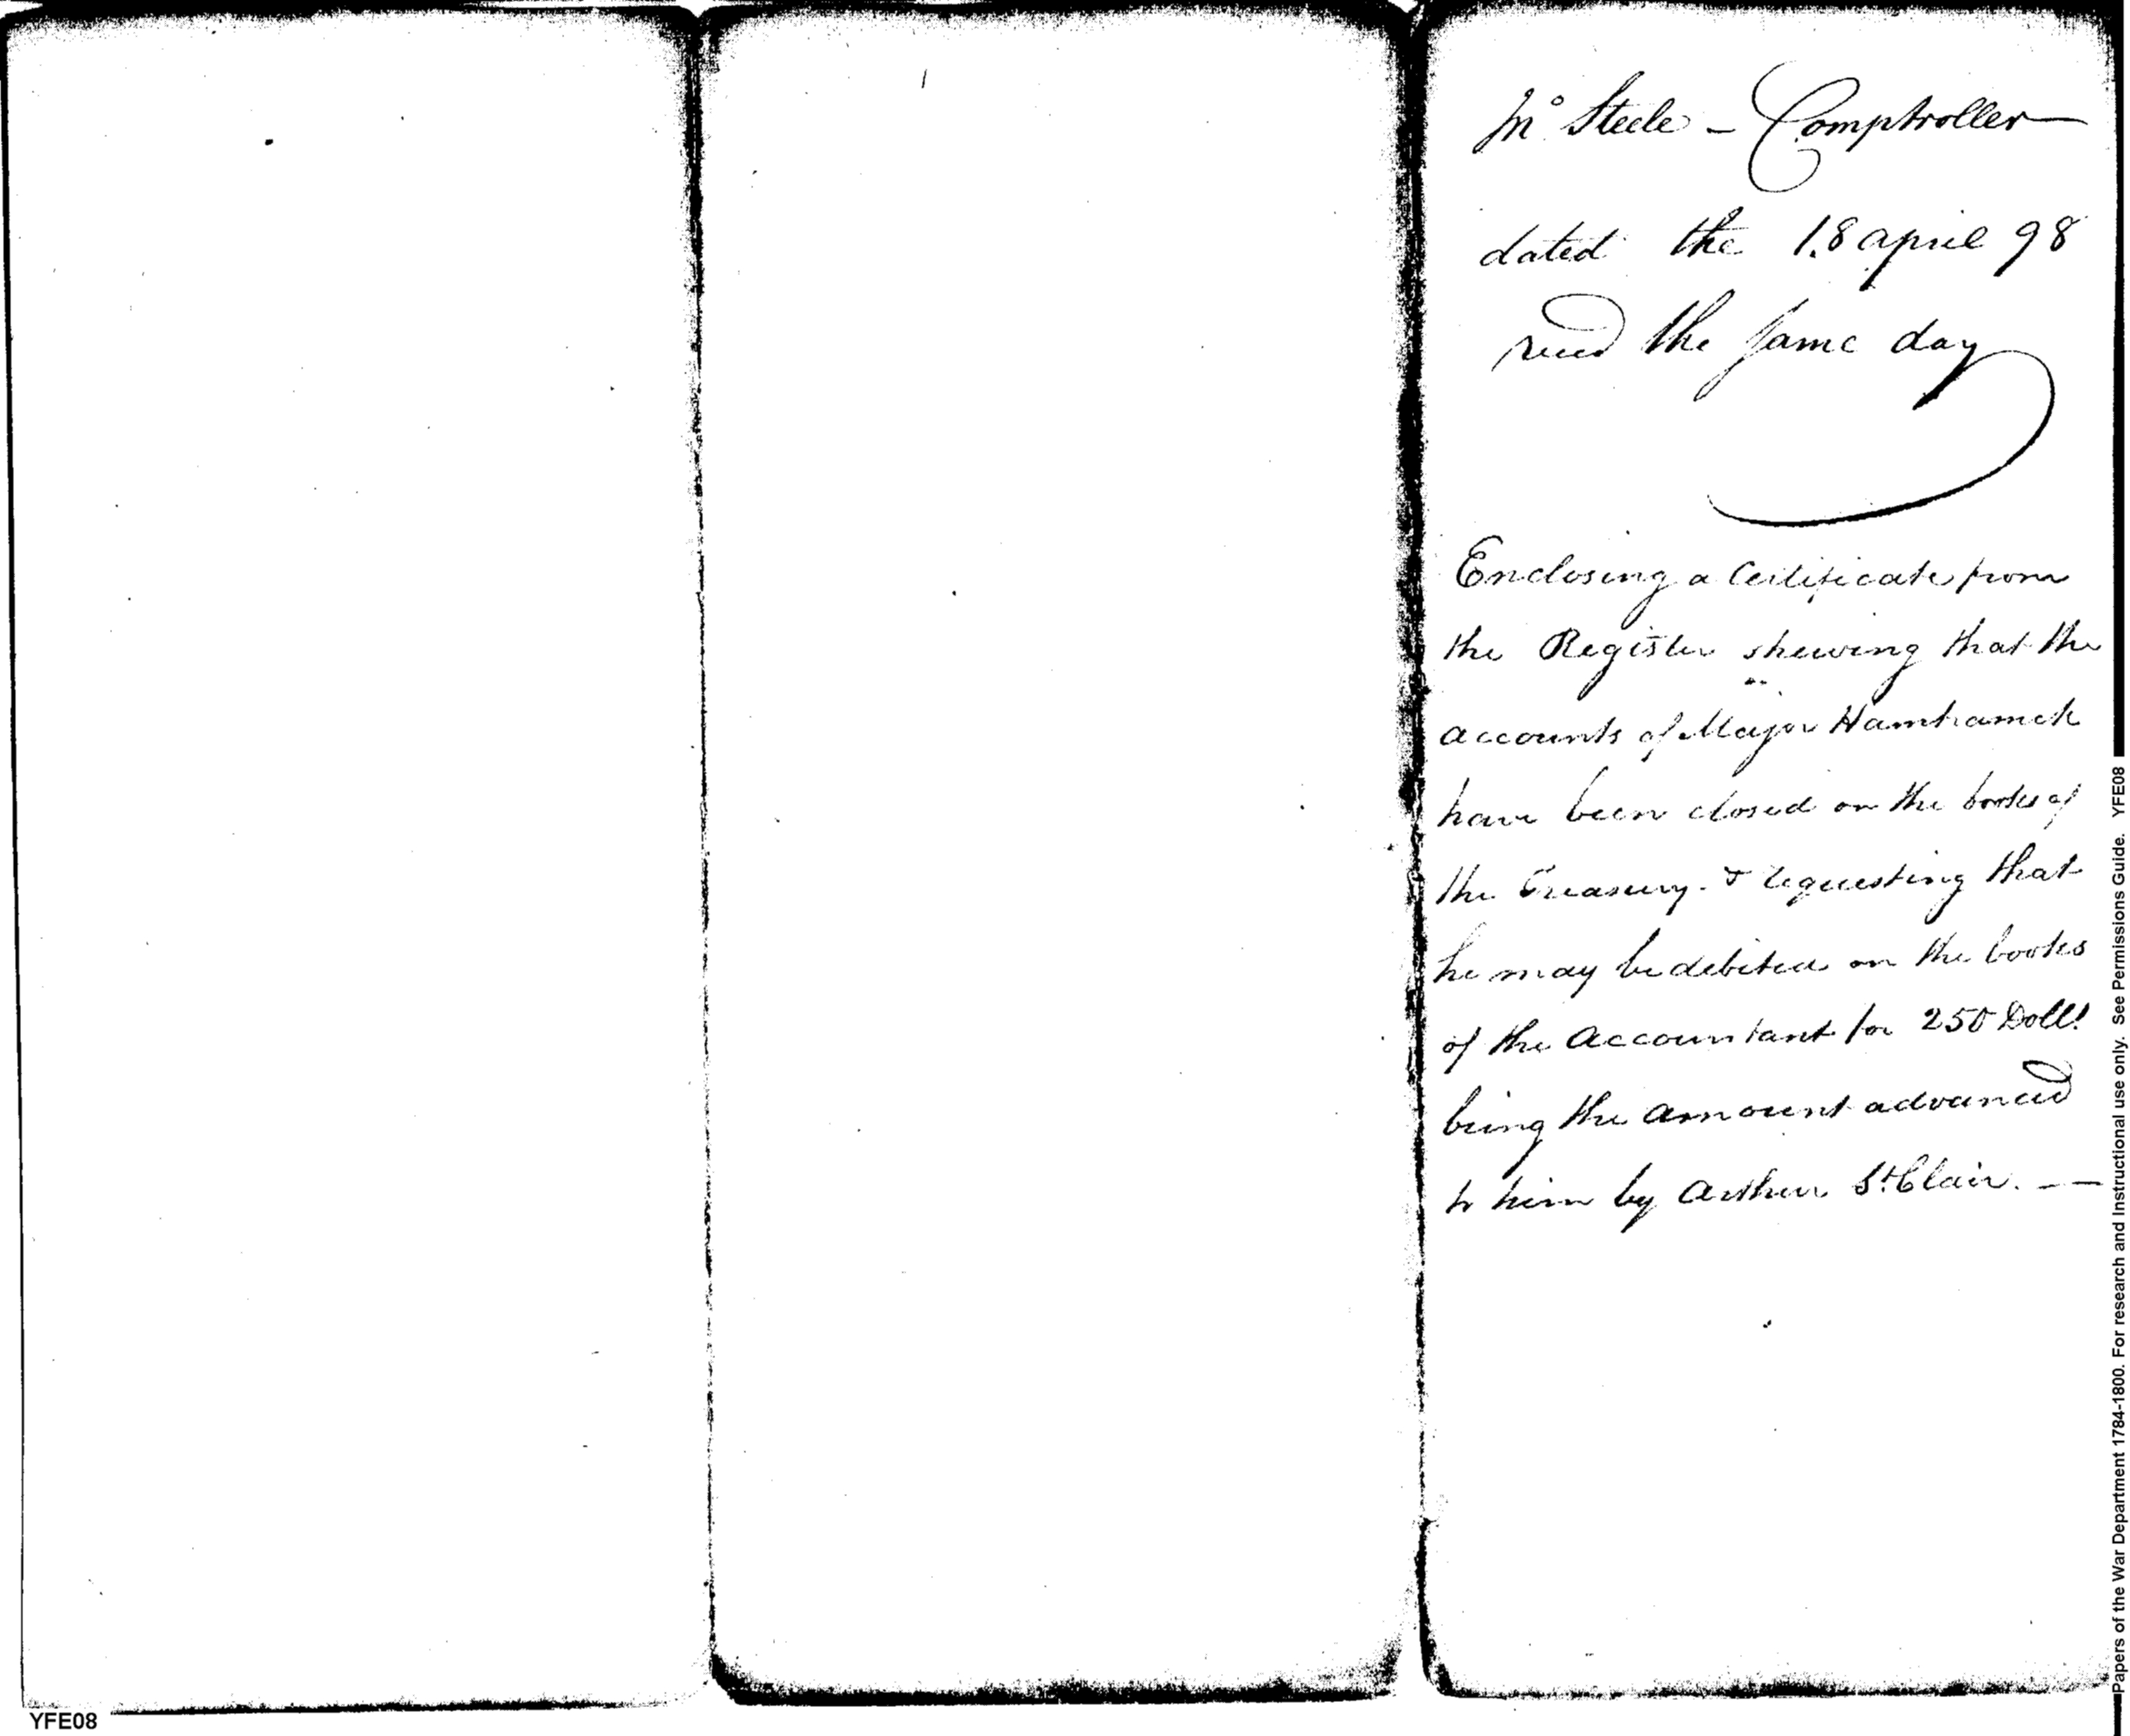 Jnº Steele - Comptroller
dated the 18 april 98
recd the same day
Enclosing a Certificate from
the Register shewing that the
accounts of Major Hamtramck
have been closed on the books of
the Treasury - & requesting that
he may be debited on the books
of the Accountant for 250 Dolls
being the amount advanced
to him by Arthur St Clair. — —
Papers of the War Department 1784-1800. For research and Instructional use only. See Permissions Guide. YFE08
YFE08